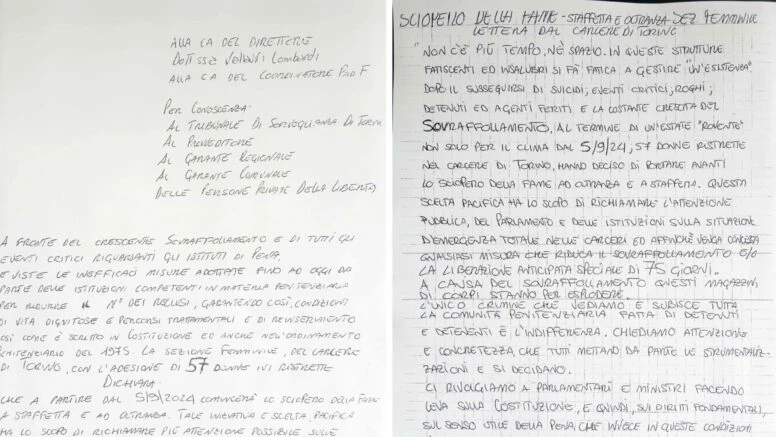 ALLA CA DEL DIRETTORE
DOTT.SSA LOMBARDI
ALLA CA DEL COORDINATORE PAD F
PER CONOSCENZA:
AL TRIBUNALE DI SORVEGLIANZA DI TORINO
AL PROVVEDITORE
AL GARANTE REGIONALE
AL GARANTE COMUNALE
DELLE PERSONE PRIVATE DELLA LIBERTÀ
A FRONTE DEL CRESCENTE SOVRAFFOLLAMENTO E DI TUTTI GLI
EVENTI CRITICI RIGUARDANTI GLI ISTITUTI DI PENA,
E VISTE LE INEFFICACI MISURE ADOTTATE FINO AD OGGI DA
PARTE DELLE ISTITUZIONI COMPETENTI IN MATERIA PENITENZIARIA
PER RIDURRE IL N° DEI RECLUSI, GARANTENDO COSÌ, CONDIZIONI
DI VITA DIGNITOSE E PERCORSI TRATTAMENTALI E DI REINSERIMENTO
COSÌ COME È SCRITTO IN COSTITUZIONE ED ANCHE NELL'ORDINAMENTO
PENITENZIARIO DEL 1975. LA SEZIONE FEMMINILE, DEL CARCERE
DI TORINO, CON L'ADESIONE DI 57 DONNE IVI RISTRETTE
DICHIARA
CHE A PARTIRE DAL 5/9/2024 COMINCERÀ LO SCIOPERO DELLA FAME
A STAFFETTA E AD OLTRANZA. TALE INIZIATIVA E SCELTA PACIFICA
HA LO SCOPO DI RICHIAMARE PIÙ ATTENZIONE POSSIBILE SULLE
SCIOPERO DELLA FAME - STAFFETTA E OLTRANZA SEZ FEMMINILE
LETTERA DAL CARCERE DI TORINO
"NON C'È PIÙ TEMPO, NÈ SPAZIO. IN QUESTE STRUTTURE
FATISCENTI ED INSALUBRI SI FÀ FATICA A GESTIRE "UN'ESISTENZA"
DOPO IL SUSSEGUIRSI DI SUICIDI, EVENTI CRITICI, ROGHI;
DETENUTI ED AGENTI FERITI E LA COSTANTE CRESCITA DEL
SOVRAFFOLLAMENTO, AL TERMINE DI UN'ESTATE "ROVENTE"
NON SOLO PER IL CLIMA DAL 5/9/24, 57 DONNE RISTRETTE
NEL CARCERE DI TORINO, HANNO DECISO DI PORTARE AVANTI
LO SCIOPERO DELLA FAME AD OLTRANZA E A STAFFETTA. QUESTA
SCELTA PACIFICA HA LO SCOPO DI RICHIAMARE L'ATTENZIONE
PUBBLICA, DEL PARLAMENTO E DELLE ISTITUZIONI SULLA SITUAZIONE
D'EMERGENZA TOTALE NELLE CARCERI ED AFFINCHÈ VENGA CONCESSA
QUALSIASI MISURA CHE RIDUCA IL SOVRAFFOLLAMENTO E/O
LA LIBERAZIONE ANTICIPATA SPECIALE DI 75 GIORNI.
A CAUSA DEL SOVRAFFOLLAMENTO QUESTI MAGAZZINI,
DI CORPI STANNO PER ESPLODERE.
L'UNICO CRIMINE CHE VEDIAMO E SUBISCE TUTTA
LA COMUNITÀ PENITENZIARIA FATTA DI DETENUTI
E DETENENTI È L'INDIFFERENZA. CHIEDIAMO ATTENZIONE
E CONCRETEZZA, CHE TUTTI METTANO DA PARTE LE STRUMENTALIZ-
ZAZIONI E SI DECIDANO.
CI RIVOLGIAMO A PARLAMENTARI E MINISTRI FACENDO
LEVA SULLA COSTITUZIONE, E QUINDI, SUI DIRITTI FONDAMENTALI,
SUL SENSO UTILE DELLA PENA, CHE INVECE IN QUESTE CONDIZIONI